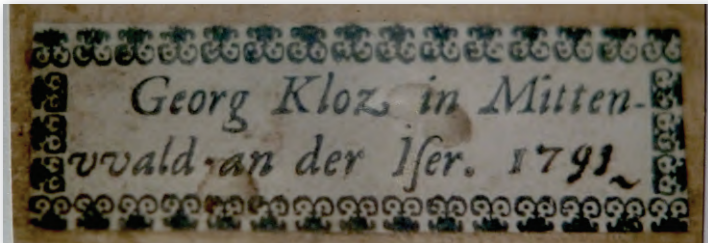 Georg Kloz in Mitten-
vvald an der Iſer. 1791